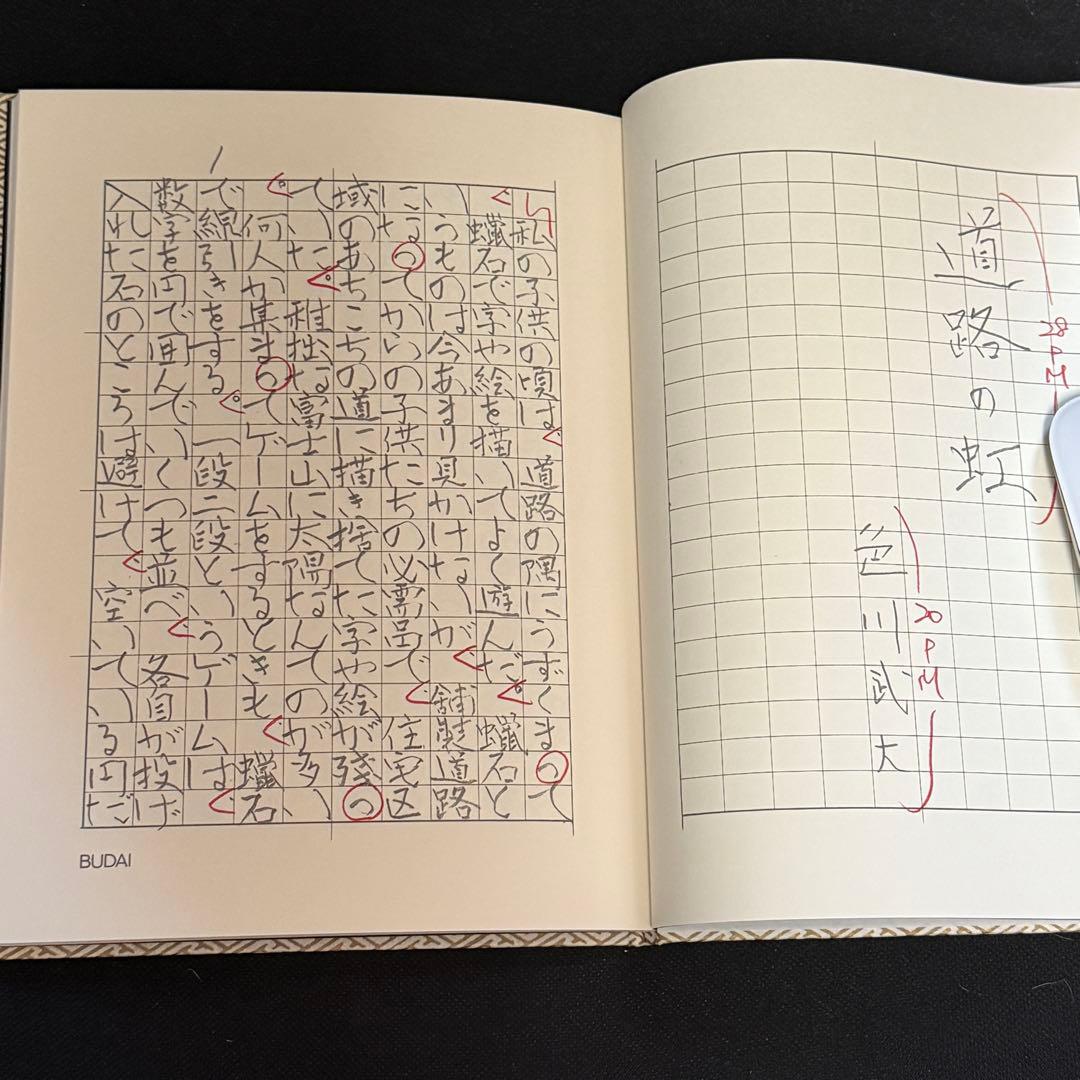 道路の虹
28PM
色川武大
20PM
1
私の子供の頃は道路の隅にうずくまって
蠟石で字や絵を描いてよく遊んだ蠟石と
いうものは今あまり見かけないが舗装道路
になってからの子供たちの必需品で住宅区
域のあちこちの道に描き捨てた字や絵が残っ
ていた稚拙な富士山に太陽なんてのが多い
何人か集まってゲームをするときも蠟石
で線引きをする一段二段というゲームは
数字を円で囲んでいくつも並べ各自が投げ
入れた石のところは避けて空いている円だ
BUDAI